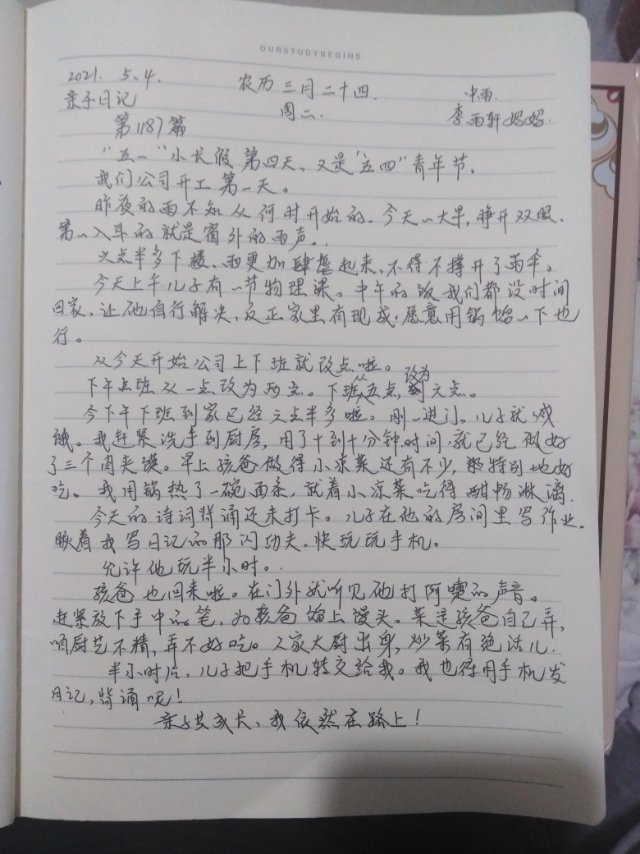 OURSTUDYBEGINS
2021. 5.4. 农历三月二十四. 中雨.
亲子日记 周二. 李雨轩妈妈.
第1187篇
“五一”小长假第四天,又是“五四”青年节,
我们公司开工第一天。
昨夜的雨不知从何时开始的,今天一大早,睁开双眼,
第一入耳的就是窗外的雨声。
六点半多下楼,雨更加肆虐起来,不得不撑开了雨伞。
今天上午儿子有一节物理课。中午的饭我们都没时间
回家,让他自行解决,反正家里有现成,愿意用锅馏一下也
行。
从今天开始公司上下班就改点啦。
下午上班从一点改为两点。下班从五点改为六点。
今下午下班到家已经六点半多啦。刚一进门,儿子就喊
饿。我赶紧洗手到厨房,用了十到十分钟时间,就已经做好
了三个肉夹馍。早上孩爸做得小凉菜还有不少,特别地好
吃。我用锅热了一碗面条,就着小凉菜吃得酣畅淋漓.
今天的诗词背诵还未打卡。儿子在他的房间里写作业.
瞅着我写日记的那闪功夫,快玩玩手机。
允许他玩半小时。
孩爸也回来啦。在门外就听见他打阿嚏的声音。
赶紧放下手中的笔,为孩爸馏上馒头。菜是孩爸自己弄,
咱厨艺不精,弄不好吃。人家大厨出身,炒菜有绝活儿.
半小时后,儿子把手机转交给我。我也得用手机发
日记,背诵呢!
亲子共成长,我依然在路上!